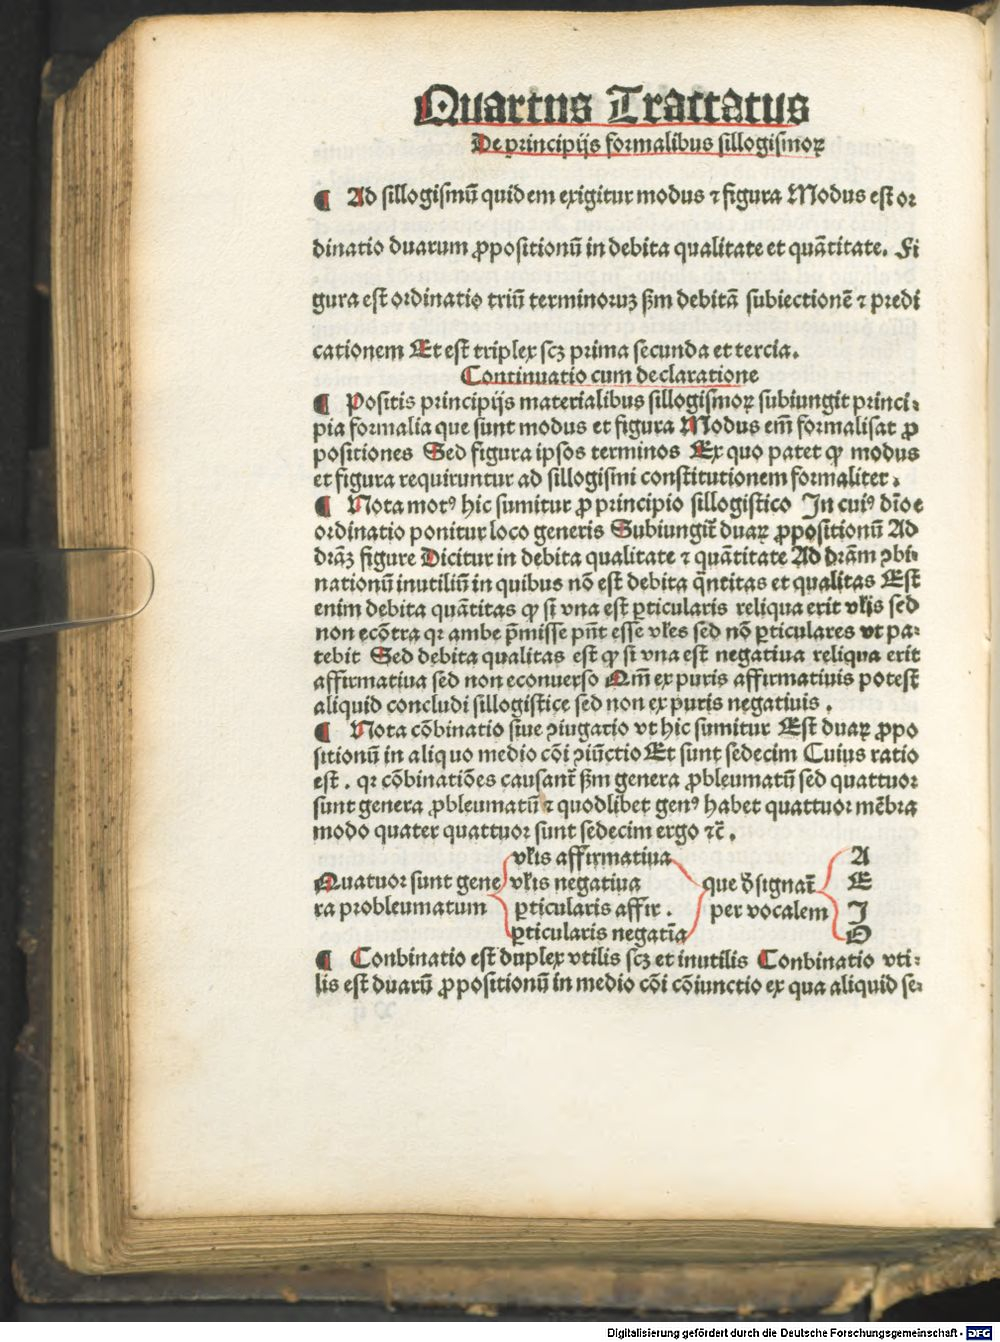 Quartus Tractatus
De principijs formalibus sillogismoꝝ
¶ Ad sillogismū quidem exigitur modus ⁊ figura Modus est or
dinatio duarum ꝓpositionū in debita qualitate et quātitate. Fi
gura est ordinatio triū terminoruꝫ ẜm debitā subiectionē ⁊ predi
cationem Et est triplex scꝫ prima secunda et tercia.
Continuatio cum declaratione
¶ Positis principijs materialibus sillogismoꝝ subiungit princi⸗
pia formalia que sunt modus et figura Modus em̄ formalisat ꝓ
positiones Sed figura ipsos terminos Ex quo patet ꝙ modus
et figura requiruntur ad sillogismi constitutionem formaliter.
¶ Nota motꝰ hic sumitur ꝓ principio sillogistico In cuiꝰ dīoe
ordinatio ponitur loco generis Subiungit̄ duaꝝ ꝓpositionū Ad
drāꝫ figure Dicitur in debita qualitate ⁊ quātitate Ad drām ꝯbi⸗
nationū inutiliū in quibus nō est debita q̄ntitas et qualitas Est
enim debita quātitas ꝙ si vna est ꝑticularis reliqua erit vl̄is sed
non ecōtra qꝛ ambe p̄misse pn̄t esse vl̄es sed nō ꝑticulares vt pa⸗
tebit Sed debita qualitas est ꝙ si vna est negatiua reliqua erit
affirmatiua sed non econuerso Qm̄ ex puris affirmatiuis potest
aliquid concludi sillogistice sed non ex puris negatiuis.
¶ Nota cōbinatio siue ꝯiugatio vt hic sumitur Est duaꝝ ꝓpo
sitionū in aliquo medio cōi ꝯiūctio Et sunt sedecim Cuius ratio
est. qꝛ cōbinatiōes causant̄ ẜm genera ꝓbleumatū sed quattuor
sunt genera ꝓbleumatū ⁊ quodlibet genꝰ habet quattuor mēbra
modo quater quattuor sunt sedecim ergo ⁊c̄.
vl̄is affirmatiua A
Quatuor sunt gene vl̄is negatiua que d̄signat̄ E
ra probleumatum ꝑticularis affir. per vocalem I
ꝑticularis negatīa O
¶ Conbinatio est duplex vtilis scꝫ et inutilis Conbinatio vti⸗
lis est duarū ꝓpositionū in medio cōi cōiunctio ex qua aliquid se⸗
Digitalisierung gefördert durch die Deutsche Forschungsgemeinschaft - DFG